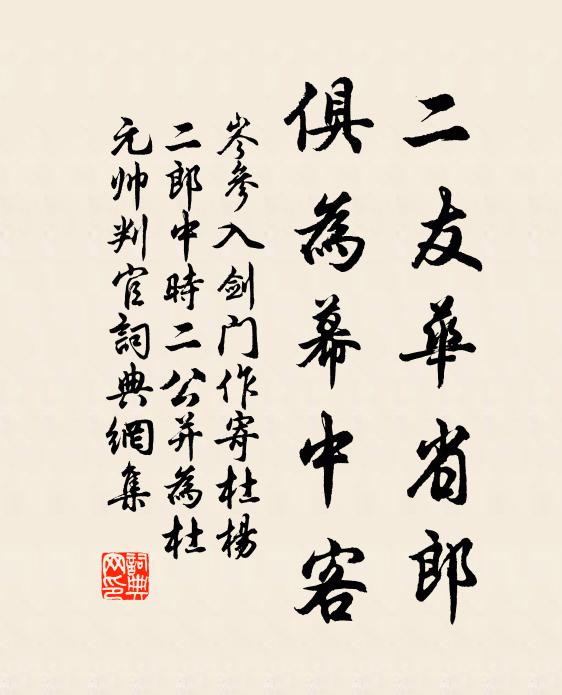 二友華省郎
俱為幕中客
岑參入劍门作寄杜楊
二郎中時二公并為杜
元帅判官詞典網集
詞典网印